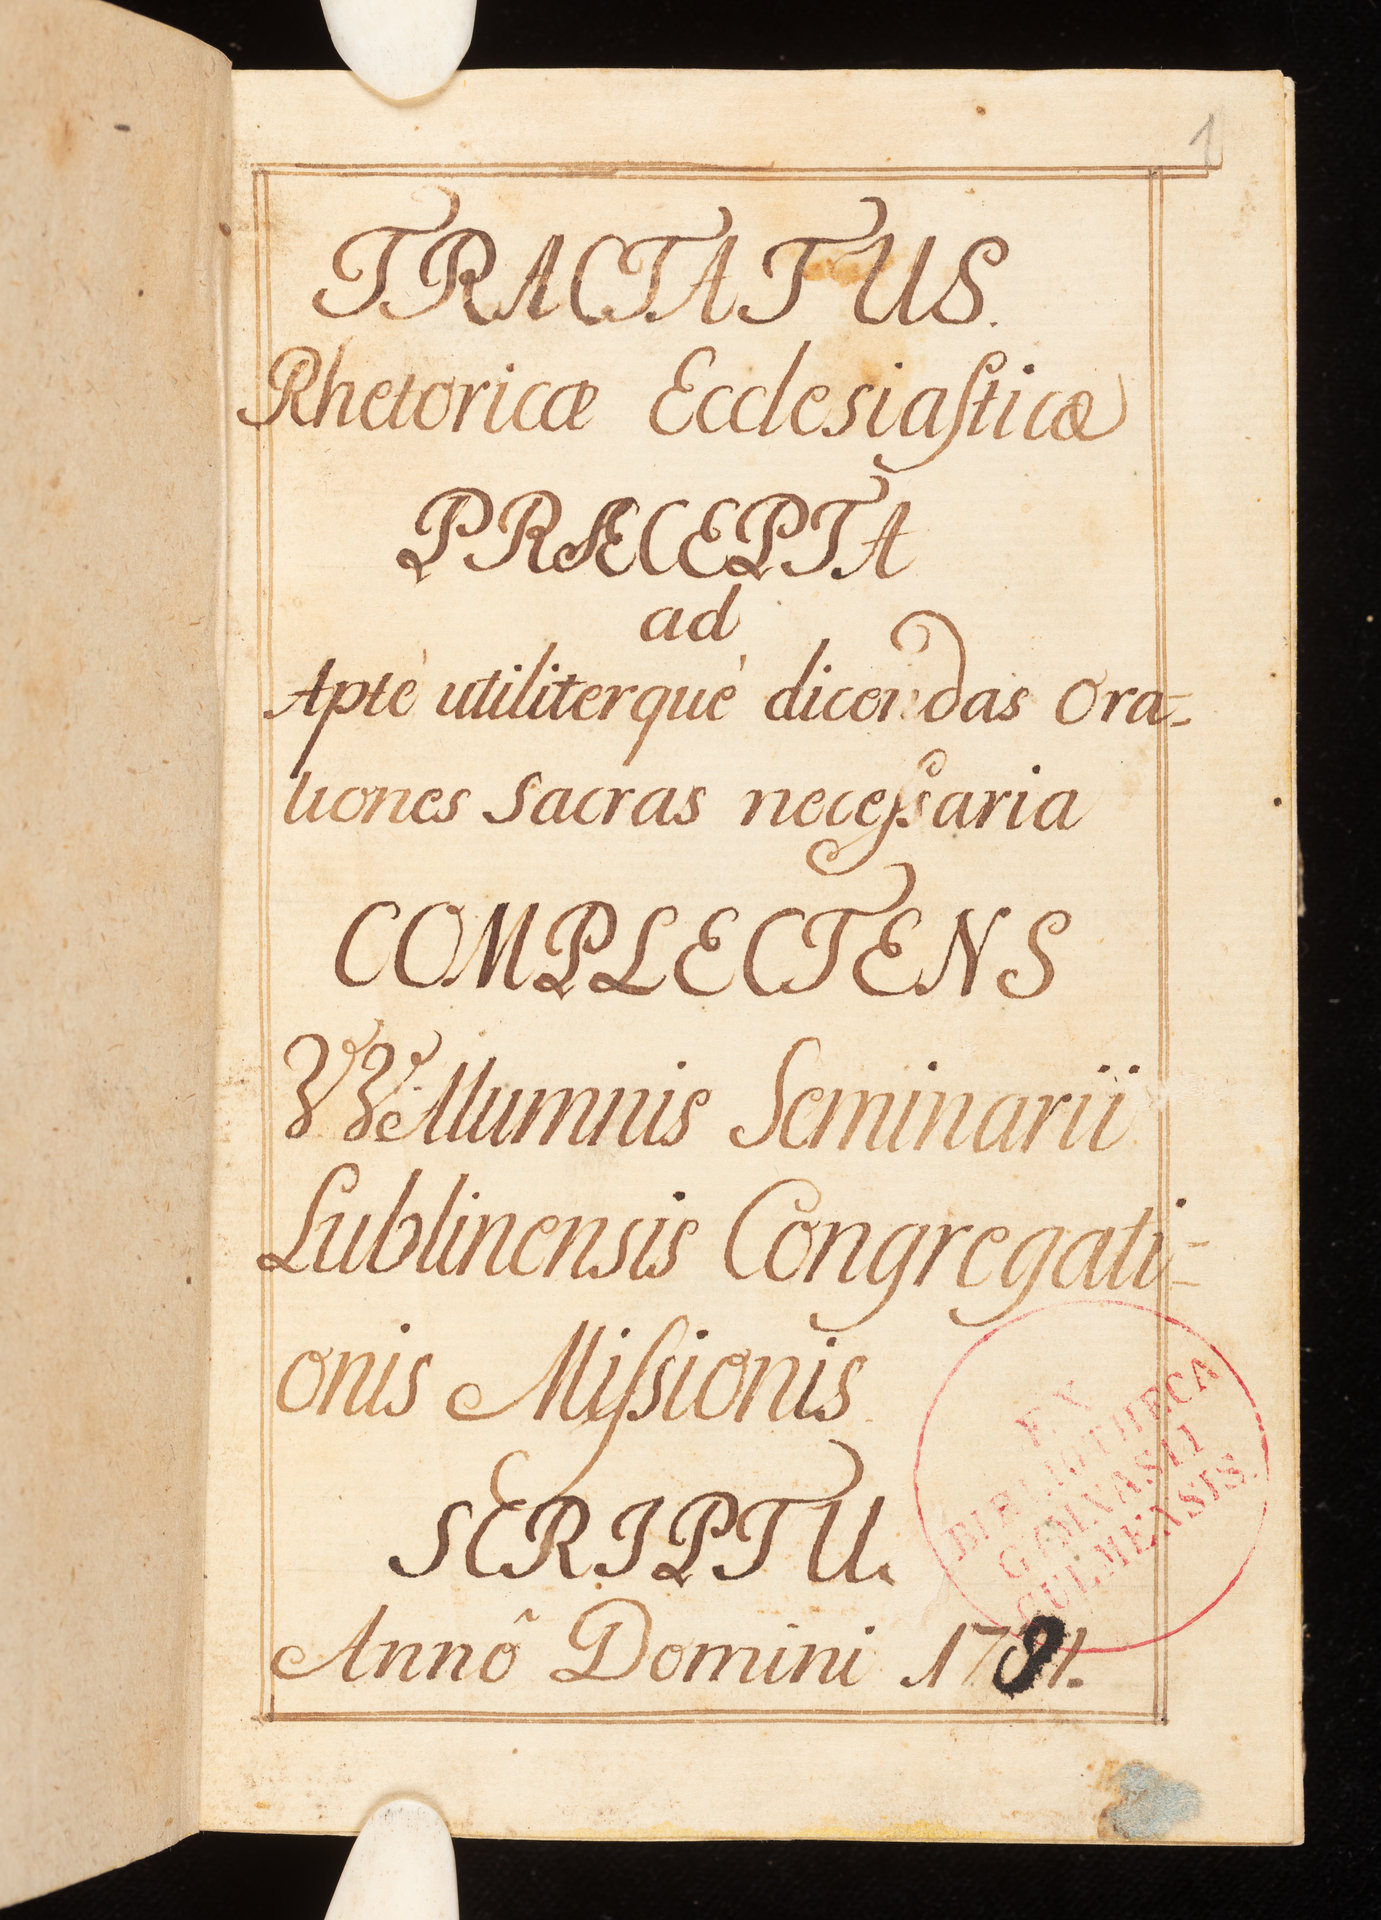 1
TRACTATUS.
Rhetoricæ Ecclesiasticæ
PRÆCEPTA
ad
Aptè utiliterquè dicendas Ora=
tiones Sacras necessaria
COMPLECTENS
VV. Alumnis Seminarii
Lublinensis Congregati=
onis Missionis
SCRIPTU.
Annô Domini 1791.
EX
BIBLIOTHECA
GYMNASII
CULMENSIS.